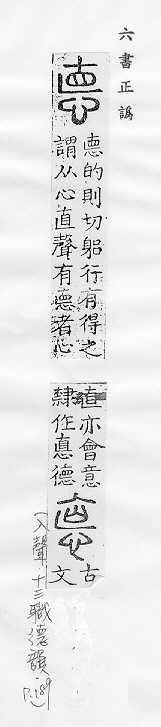 六書正譌
悳
悳的則切躳行有得之
謂从心直聲有悳者心
直亦會意
隸作惪德
古
文
(入聲十三職德韻 P.189)